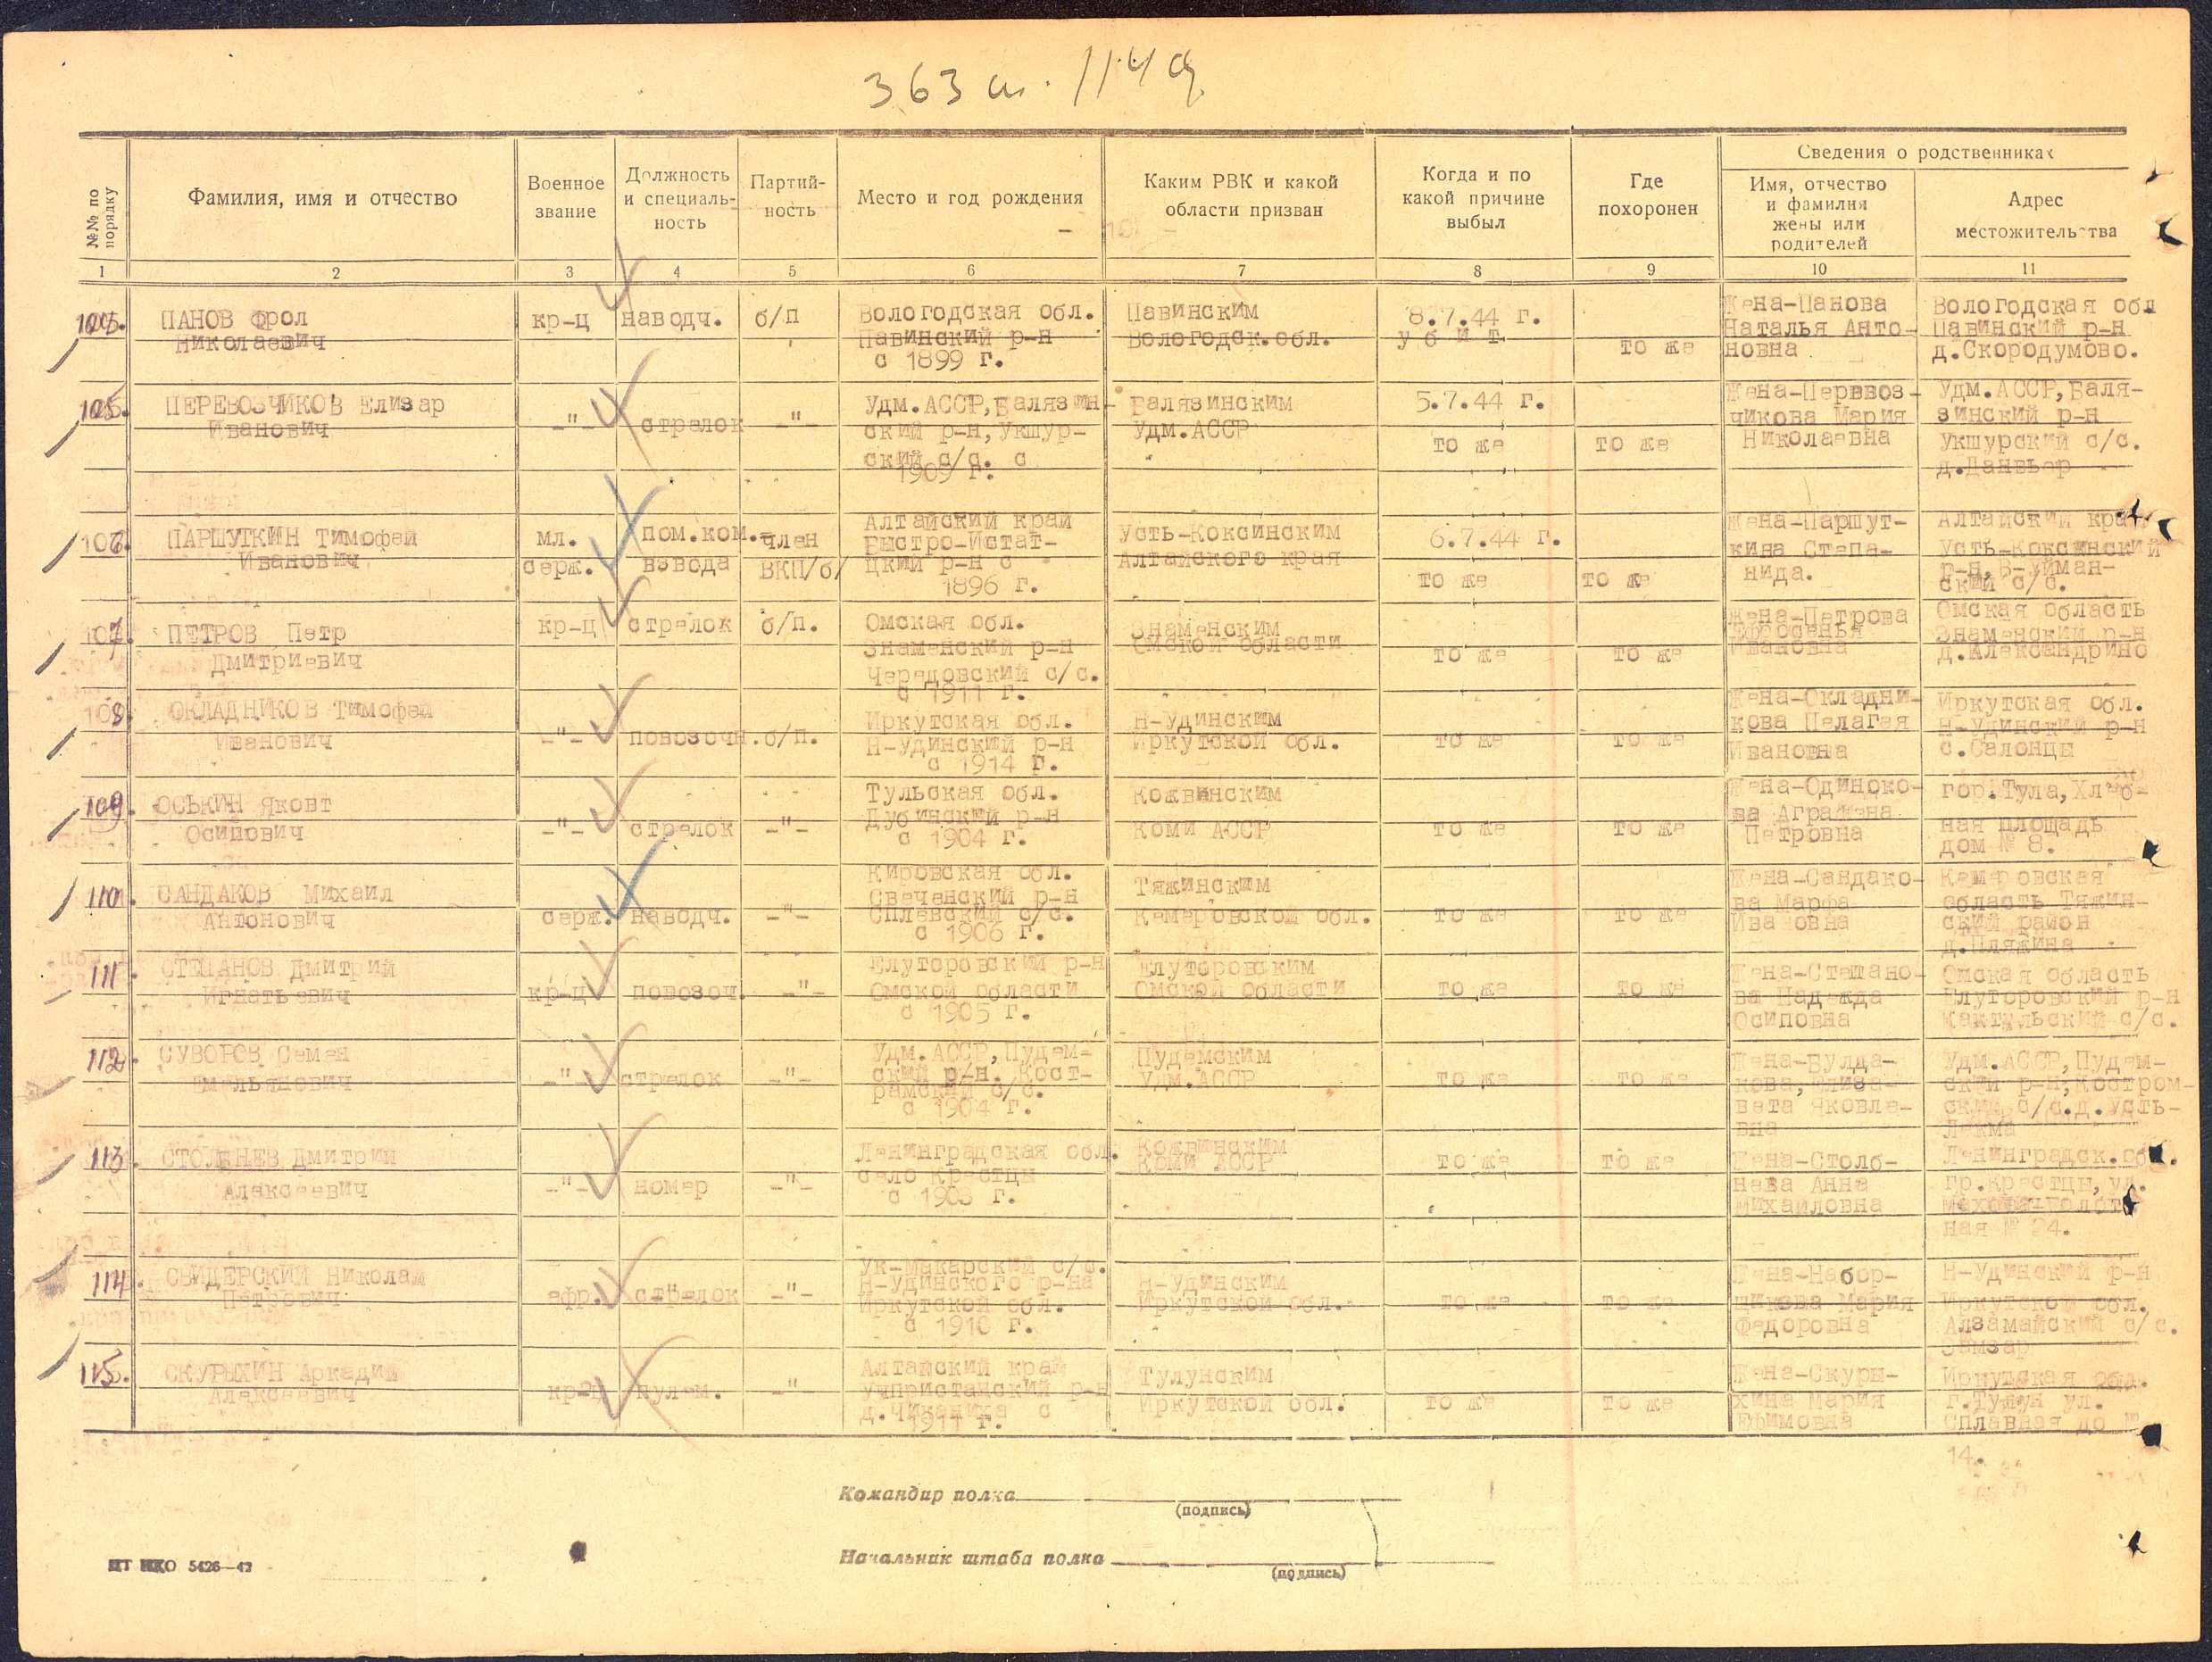 363 сп. 114 д
№№ по порядку
Фамилия, имя и отчество
Военное звание
Должность и специаль-ность
Партий-ность
Место и год рождения
Каким РВК и какой области призван
Когда и по какой причине выбыл
Где похоронен
Сведения о родственниках
Имя, отчество и фамилия жены или родителей
Адрес местожительства
1 2 3 4 5 6 7 8 9 10 11
104. ПАНОВ Фрол Николаевич
кр-ц
наводч.
б/п
Вологодская обл. Павинский р-н с 1899 г.
Павинским Вологодск.обл.
8.7.44 г. у б и т
то же
Жена-Панова Наталья Анто-новна
Вологодская обл Павинский р-н д.Скородумово.
105. ПЕРЕВОЗЧИКОВ Елизар Иванович
-"-
стрелок
-"-
Удм.АССР,Балязин-ский р-н, Укшур-ский с/с. с 1909 г.
Балязинским Удм.АССР
5.7.44 г. то же
то же
Жена-Перевоз-чикова Мария Николаевна
Удм.АССР,Баля-зинский р-н Укшурский с/с.
106. ПАРШУТКИН Тимофей Иванович
мл. серж.
пом.ком. взвода
член ВКП/б/
Алтайский край Быстро-Истат-цкий р-н с 1896 г.
Усть-Коксинским Алтайского края
6.7.44 г. то же
то же
Жена-Паршут-кина Степа-нида.
Алтайский край Усть-Коксинский р-н,В-Уйман-ский с/с.
107. ПЕТРОВ Петр Дмитриевич
кр-ц
стрелок
б/п.
Омская обл. Знаменский р-н Чередовский с/с. с 1911 г.
Знаменским Омской области
то же
то же
Жена-Петрова Ефросенья Ивановна
Омская область Знаменский р-н д.Александрино
108 ОКЛАДНИКОВ Тимофей Иванович
-"-
повозочн.
б/п.
Иркутская обл. Н-Удинский р-н с 1914 г.
Н-Удинским Иркутской обл.
то же
то же
Жена-Окладни-кова Пелагея Ивановна
Иркутская обл. Н-Удинский р-н с.Солонцы
109. ОСЬКИН Яковт Осипович
-"-
стрелок
-"-
Тульская обл. Дубинский р-н с 1904 г.
Кожвинским Коми АССР
то же
то же
Жена-Одиноко-ва Аграфена Петровна
гор.Тула,Хлеб-ная площадь дом № 8.
110. САНДАКОВ Михаил Антонович
серж.
наводч.
-"-
Кировская обл. Свеченский р-н Сплевский с/с. с 1906 г.
Тяжинским Кемеровской обл.
то же
то же
Жена-Сандако-ва Марфа Ивановна
Кемеровская область Тяжин-ский район
111. СТЕПАНОВ Дмитрий Игнатьевич
кр-ц
повозоч.
-"-
Ялуторовский р-н Омской области с 1905 г.
Ялуторовским Омской области
то же
то же
Жена-Степано-ва Надежда Осиповна
Омская область Ялуторовский р-н
112. СУВОРОВ Семен Емельянович
-"-
стрелок
-"-
Удм.АССР,Пудем-ский р-н. Кост-рамский с/с. с 1904 г.
Пудемским Удм.АССР
то же
то же
Жена-Булда-кова,Елиза-вета Яковле-вна
Удм.АССР,Пудем-ский р-н,Костром-ский с/с.д.Усть-Лекма
113. СТОЛБНЕВ Дмитрий Алексеевич
-"-
номер
-"-
Ленинградская обл. село Крестцы с 1903 г.
Кожвинским Коми АССР
то же
то же
Жена-Столб-нева Анна Михайловна
Ленинградск.обл. гр.Крестцы, ул. № 24.
114. СВИДЕРСКИЙ Николай Петрович
ефр.
стрелок
-"-
Ук-Макарский с/с. Н-Удинского р-на Иркутской обл. с 1910 г.
Н-Удинским Иркутской обл.
то же
то же
Жена-Набор-щикова Мария Федоровна
Н-Удинский р-н Иркутской обл. Алзамайский с/с.
115. СКУРЫХИН Аркадий Алексеевич
кр-ц
пулем.
-"
Алтайский край Уппристанский р-н д.Чиканиха с 1911 г.
Тулунским Иркутской обл.
то же
то же
Жена-Скуры-хина Мария Ефимовна
Иркутская обл. г.Тулун ул. Сплавная до № 14.
Командир полка
(подпись)
Начальник штаба полка
(подпись)
ПТ НКО 5426—42